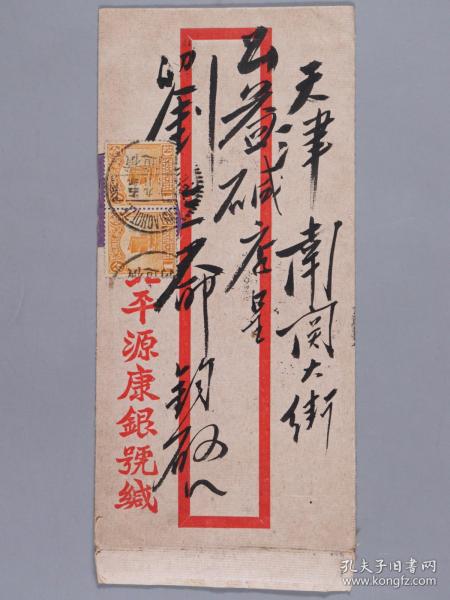 天津 南関大街
公益碱店呈
劉 鈞啟
平源康銀號緘
孔夫子旧书网
www.kongfz.com